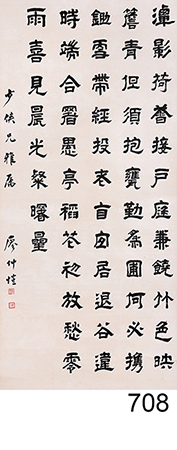 潭影荷香接戶庭兼饒竹色映
簷青但須抱甕勤為圃何必攜
鋤更帶經投老自宜居退谷違
時端合署愚亭稻花初放愁零
雨喜見晨光粲曙星
兄雅屬
廖仲愷
708